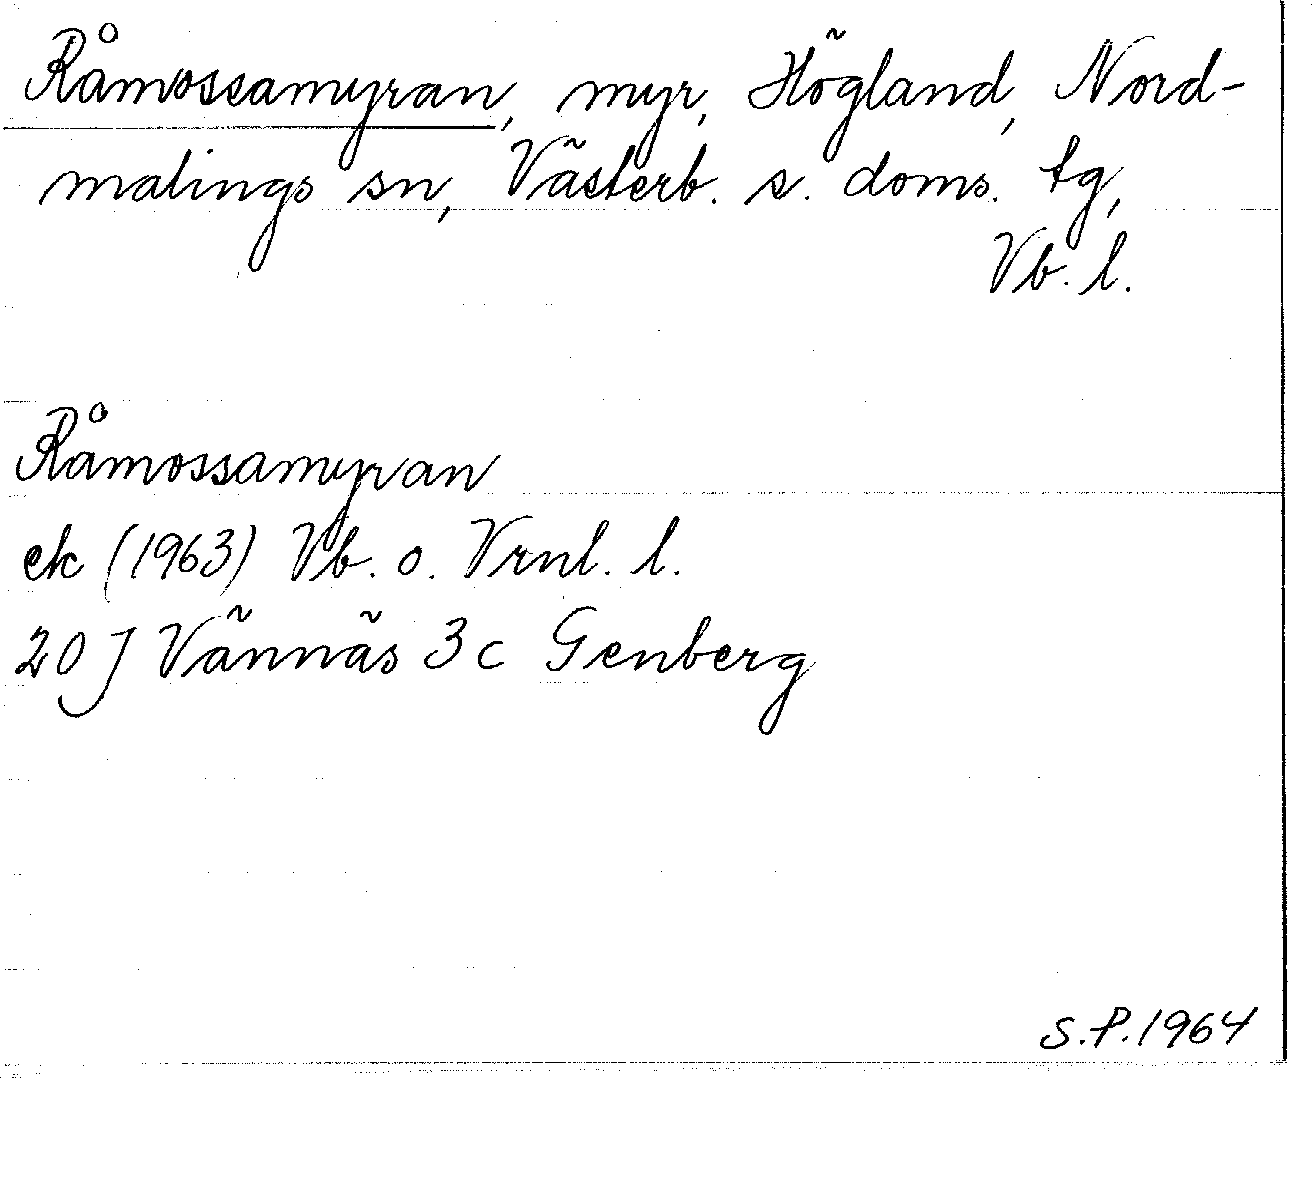 Råmossamyran, myr, Högland, Nord-
malings sn, Västerb. s. doms. tg,
Vb. l.
Råmossamyran
ek (1963) Vb. o. Vrnl. l.
20 J Vännäs 3 c Genberg
S.P. 1964